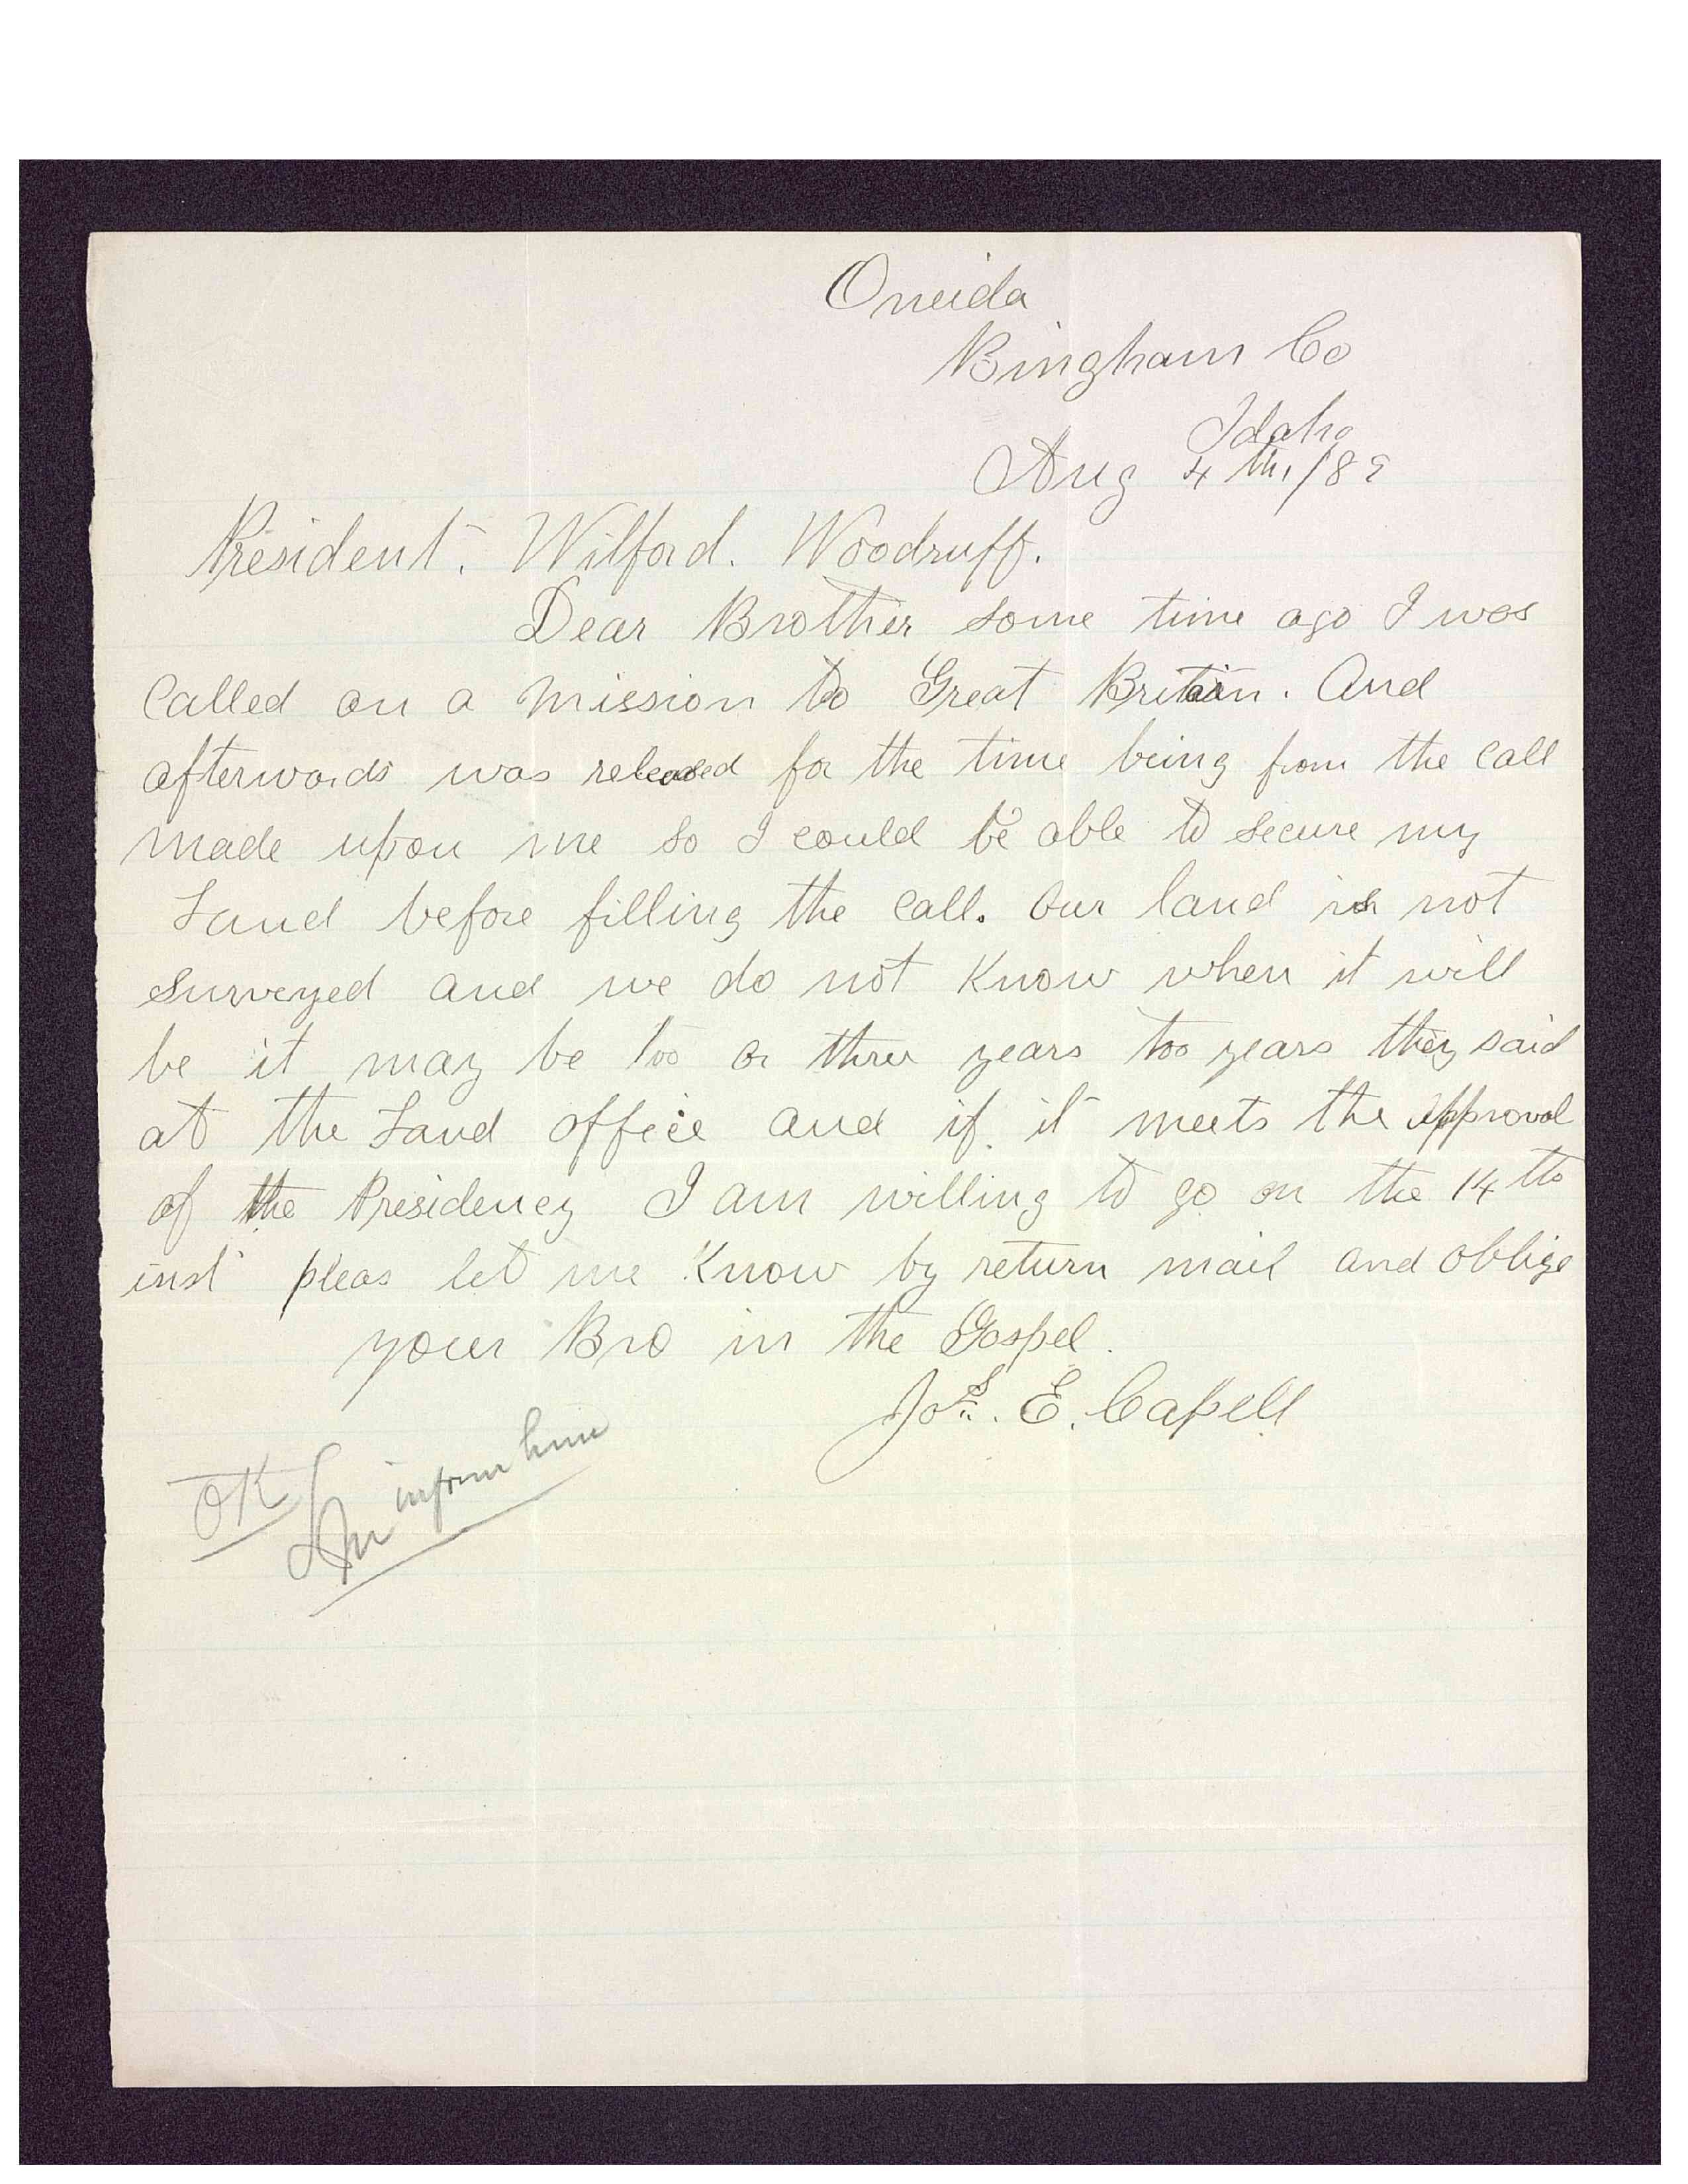 Oneida
Bingham Co
Idaho
Aug 4th, /89
President. Wilford. Woodruff.
Dear Brother some time ago I was
Called on a Mission to Great Britain. And
afterwards was released for the time being from the Call
made upon me so I could be able to secure my
Land before filling the Call. Our land is not
surveyed and we do not Know when it will
be it may be too or three years too years they said
at the Land office and if it meets the approval
of the Presidency I am willing to go on the 14th
inst pleas let me Know by return mail and oblige
your Bro in the Gospel.
Jos. E. Capell
OK
inform him